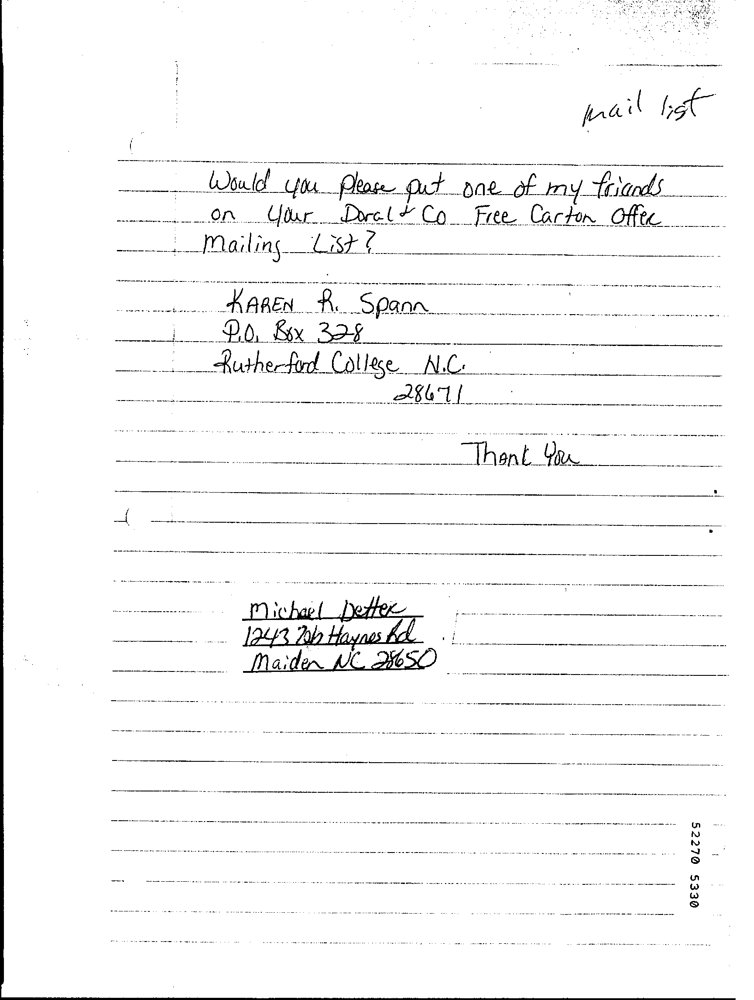 mail list
Would you please put one of my friands
on your Doral & Co Free Carton Offer
Mailing List?
KAREN R. Spann
P.O. Box 328
Rutherford College N.C.
28671
Thank You
Michael Detter
1243 Haynes Rd
Maiden NC 28650
52270 5330